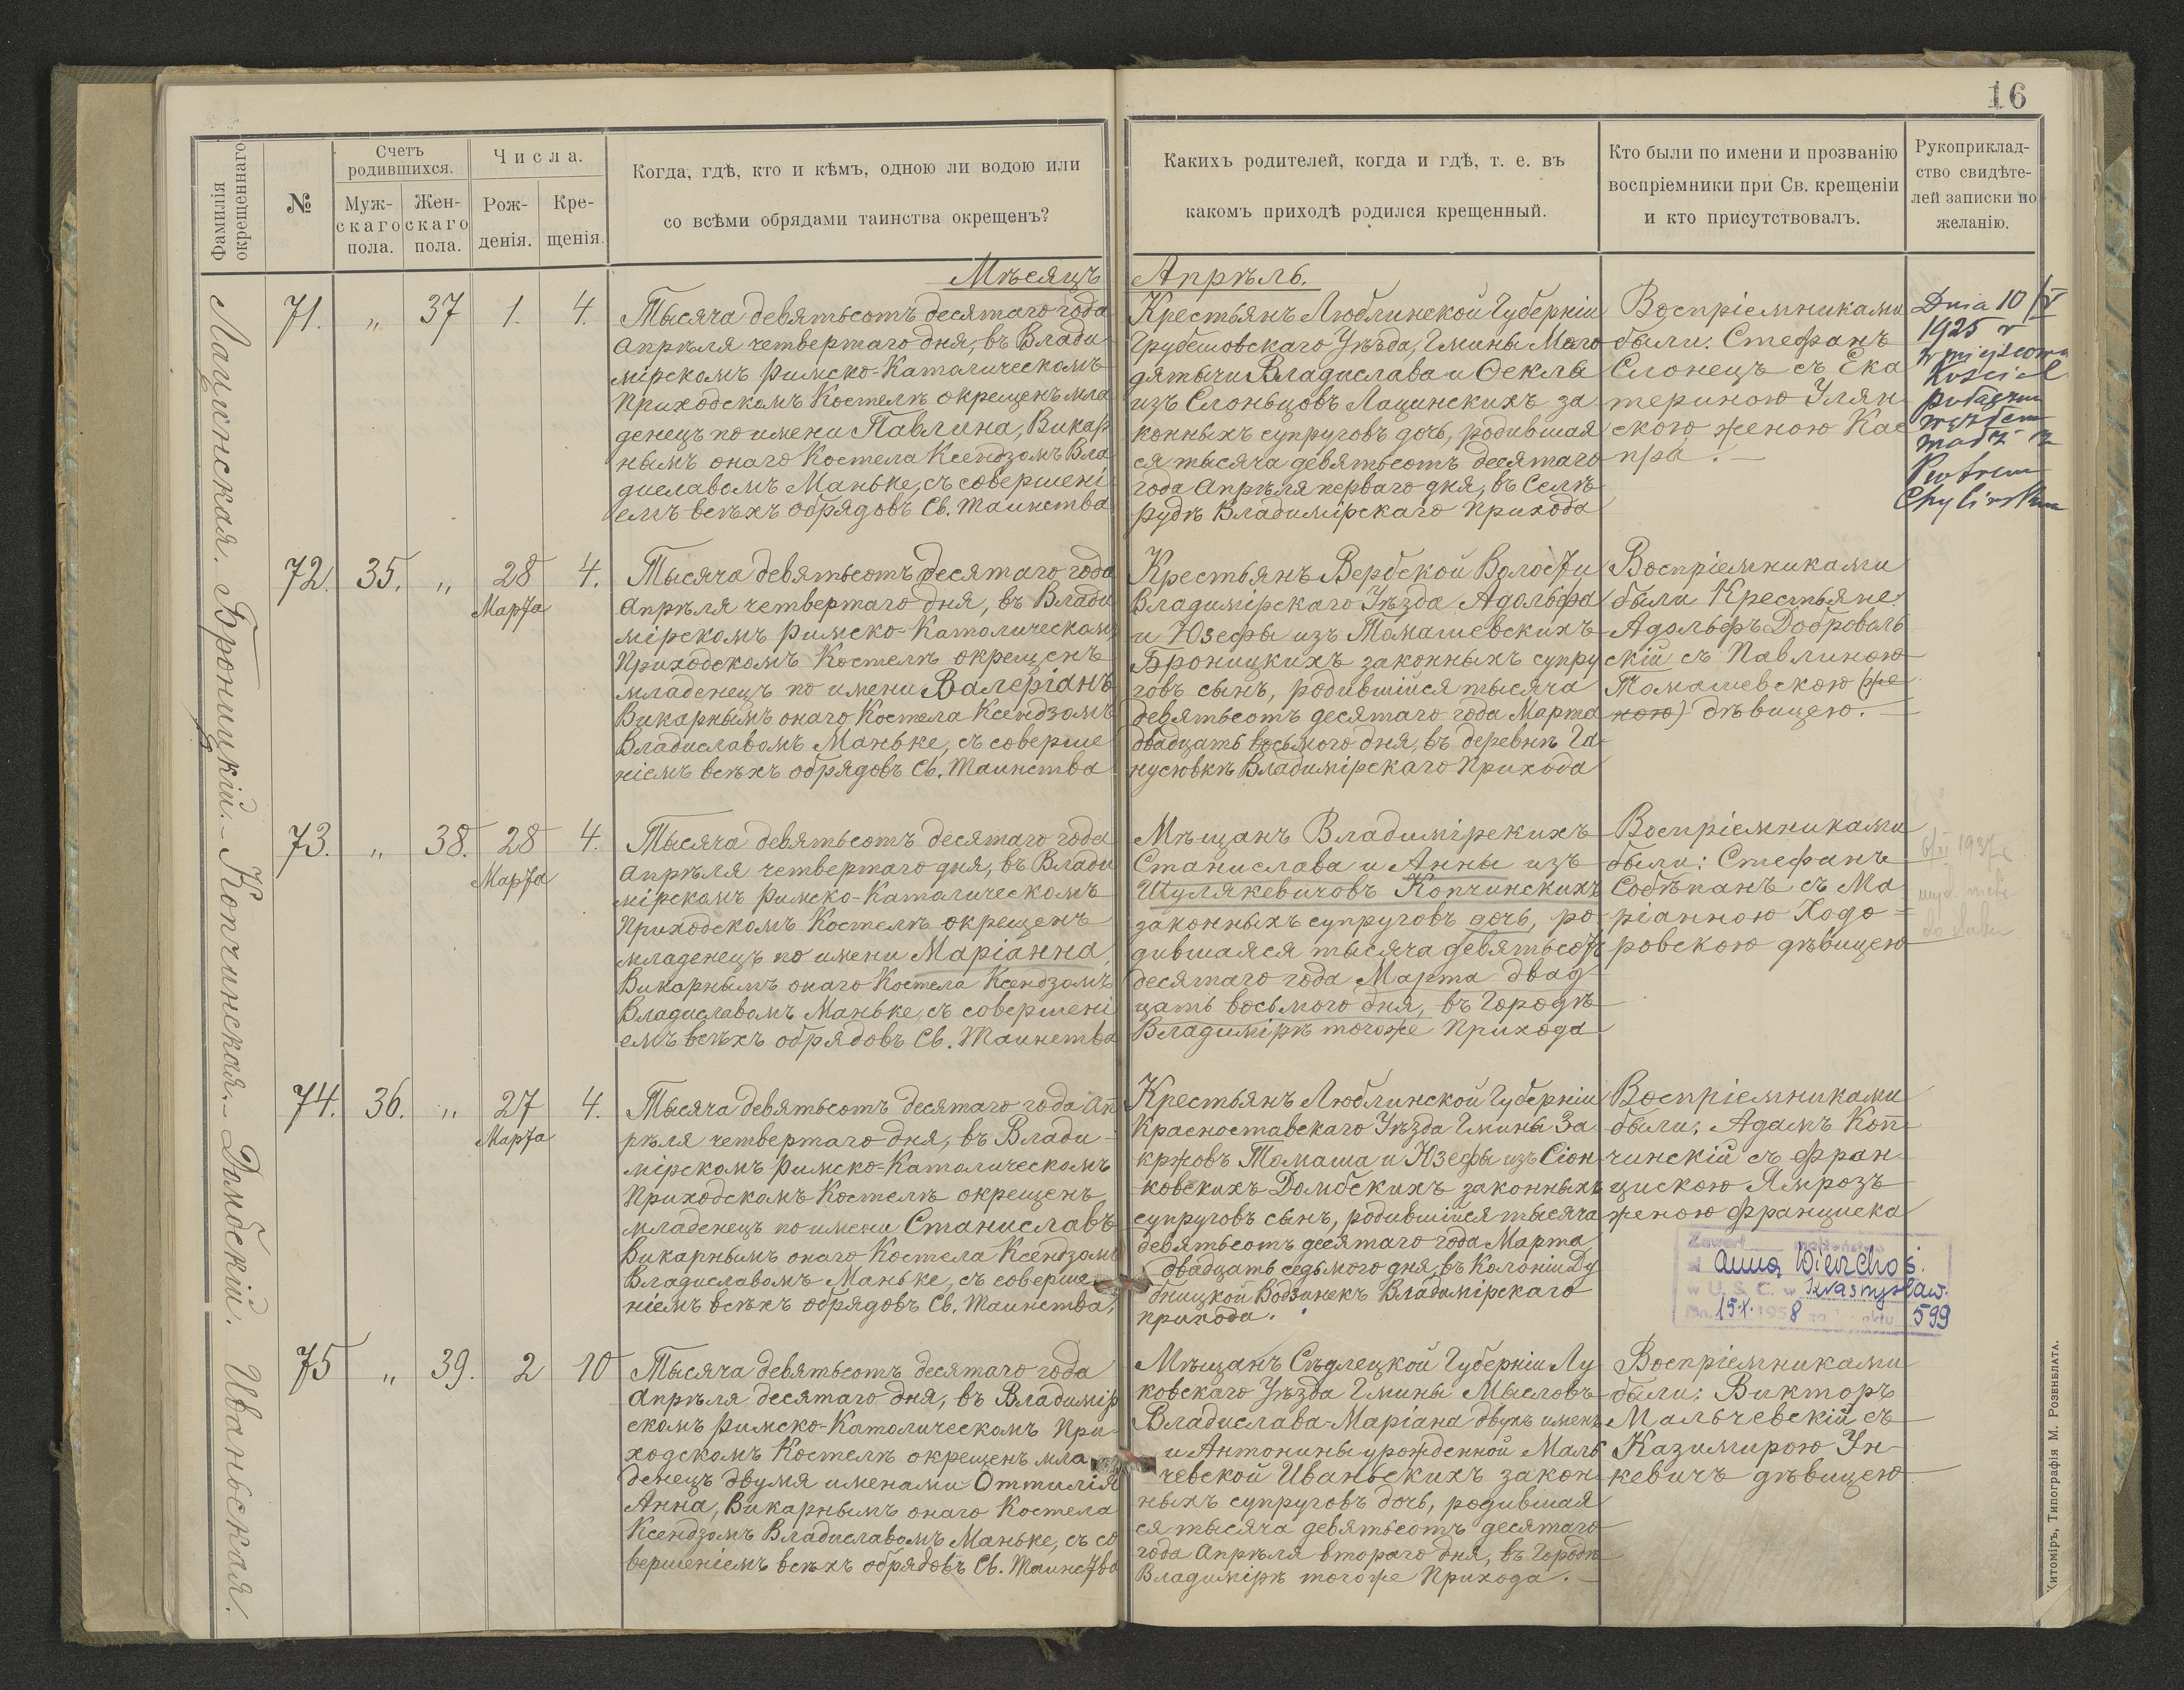 16
Фамилія окрещеннаго
№
Счетъ родившихся.
Мужскаго пола.
Женскаго пола.
Числа.
Рожденія.
Крещенія.
Когда, гдѣ, кто и кѣмъ, одною ли водою или
со всѣми обрядами таинства окрещенъ?
Какихъ родителей, когда и гдѣ, т. е. въ
какомъ приходѣ родился крещенный.
Кто были по имени и прозванію
воспріемники при Св. крещеніи
и кто присутствовалъ.
Рукоприклад-
ство свидѣте-
лей записки по
желанію.
Мѣсяцъ Апрѣль.
Лащинская.
71. „ 37 1. 4.
Тысяча девятьсотъ десятаго года
Апрѣля четвертаго дня, въ Влади
мірскомъ Римско-Католическомъ
Приходскомъ Костелѣ окрещенъ мла
денецъ по имени Павлина, Викар
нымъ онаго Костела Ксендзомъ Вла
диславомъ Маньке, съ совершені
емъ всѣхъ обрядовъ Св. Таинства
Крестьянъ Люблинской Губерніи
Грубешовскаго Уѣзда, Гмины
Владислава и Феклы
изъ Слоньцовъ Лащинскихъ за
конныхъ супруговъ дочь, родившая
ся тысяча девятьсотъ десятаго
года Апрѣля перваго дня, въ Селѣ
Рудѣ Владимірскаго прихода
Воспріемниками
были: Стефанъ
Слонецъ съ Ека
териною Улян
скою женою Кас
пра.
Dnia 10/V
1925 r
w miejscowym
Kościele
związkiem
małż
Piotrem
Chylińskim
Броницкій.
72. 35. „ 28 Марта 4.
Тысяча девятьсотъ десятаго года
Апрѣля четвертаго дня, въ Влади
мірскомъ Римско-Католическомъ
Приходскомъ Костелѣ окрещенъ
младенецъ по имени Валеріанъ
Викарнымъ онаго Костела Ксендзомъ
Владиславомъ Маньке, съ соверше
ніемъ всѣхъ обрядовъ Св. Таинства
Крестьянъ Вербской Волости
Владимірскаго Уѣзда Адольфа
и Юзефы изъ Томашевскихъ
Броницкихъ законныхъ супру
говъ сынъ, родившійся тысяча
девятьсотъ десятаго года Марта
двадцать восьмого дня, въ деревнѣ Га
нусювкѣ Владимірскаго прихода
Воспріемниками
были Крестьяне:
Адольфъ Доброволь
скій съ Павлиною
Томашевскою (же
ною) дѣвицею.
Копчинская.
73. „ 38. 28 Марта 4.
Тысяча девятьсотъ десятаго года
Апрѣля четвертаго дня, въ Влади
мірскомъ Римско-Католическомъ
Приходскомъ Костелѣ окрещенъ
младенецъ по имени Маріанна,
Викарнымъ онаго Костела Ксендзомъ
Владиславомъ Маньке, съ совершені
емъ всѣхъ обрядовъ Св. Таинства
Мѣщанъ Владимірскихъ
Станислава и Анны изъ
Шулякевичовъ Копчинскихъ
законныхъ супруговъ дочь, ро
дившаяся тысяча девятьсотъ
десятаго года Марта двад
цать восьмого дня, въ Городѣ
Владимірѣ тогоже прихода
Воспріемниками
были: Стефанъ
Собѣпанъ съ Ма
ріанною Ходо=
ровскою дѣвицею
1937
Домбскій.
74. 36. „ 27 Марта 4.
Тысяча девятьсотъ десятаго года Ап
рѣля четвертаго дня, въ Влади-
мірскомъ Римско-Католическомъ
Приходскомъ Костелѣ окрещенъ
младенецъ по имени Станиславъ
Викарнымъ онаго Костела Ксендзомъ
Владиславомъ Маньке, съ соверше
ніемъ всѣхъ обрядовъ Св. Таинства,
Крестьянъ Люблинской Губерніи
Красноставскаго Уѣзда Гмины За
кржовъ Томаша и Юзефы изъ Сіон
ковскихъ Домбскихъ законныхъ
супруговъ сынъ, родившійся тысяча
девятьсотъ десятаго года Марта
двадцать седьмого дня, въ Колоніи Ду
бницкой Водзинекъ Владимірскаго
прихода.
Воспріемниками
были: Адамъ Коп
чинскій съ Фран
цискою Ямрозъ
женою Франциска
Zawarł małżeństwo
z Anną Wierzchoś
w U. S. C. w Krasnymstaw.
Dn. 15.X. 1958 za Nr aktu 599
Иваньская.
75 „ 39. 2 10
Тысяча девятьсотъ десятаго года
Апрѣля десятаго дня, въ Владимір
скомъ Римско-Католическомъ При
ходскомъ Костелѣ окрещенъ мла
денецъ двумя именами Оттилія
Анна, Викарнымъ онаго Костела
Ксендзомъ Владиславомъ Маньке, съ со
вершеніемъ всѣхъ обрядовъ Св. Таинства
Мѣщанъ Сѣдлецкой Губерніи Лу
ковскаго Уѣзда Гмины Мысловъ
Владислава-Маріана двухъ именъ
и Антонины урожденной Маль
чевской Иваньскихъ закон
ныхъ супруговъ дочь, родившая
ся тысяча девятьсотъ десятаго
года Апрѣля второго дня, въ Городѣ
Владимірѣ тогоже прихода.
Воспріемниками
были: Викторъ
Мальчевскій съ
Казимирою Ун-
кевичъ дѣвицею
Житоміръ, Типографія М. Розенблата.